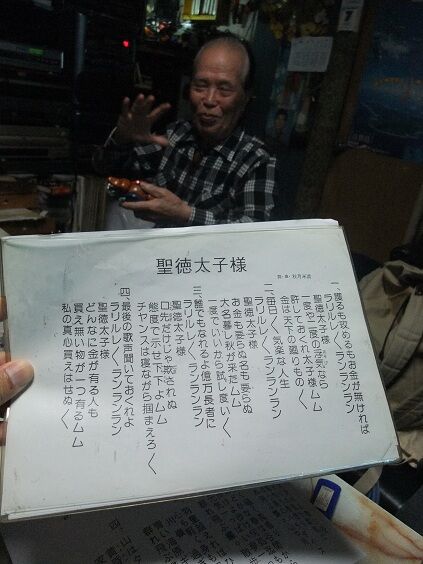 聖徳太子様
一、護るも攻めるもお金が無ければ
ラリルレ〱ランランラン
聖徳太子様ムム
一度や二度の浮気なら
許しておくれ太子様ムム
金は天下の廻りもの〱
二、毎日〱気楽な人生
ラリルレ〱ランランラン
聖徳太子様ムム
お金も要らぬ名も要らぬ
大名暮し秋が来たムム
一度でいいから試し度い〱
三、誰でもなれるよ億万長者に
ラリルレ〱ランランラン
聖徳太子様ムム
口先だけじゃ欺されぬ
態度で示せと下よムム
チャンスは寝ながら掴まえろ〱
四、最後の歌声聞いておくれよ
ラリルレ〱ランランラン
聖徳太子様
どんなに金が有る人も
買え無い物が一つ有るムム
私の真心買えはせぬ〱
7